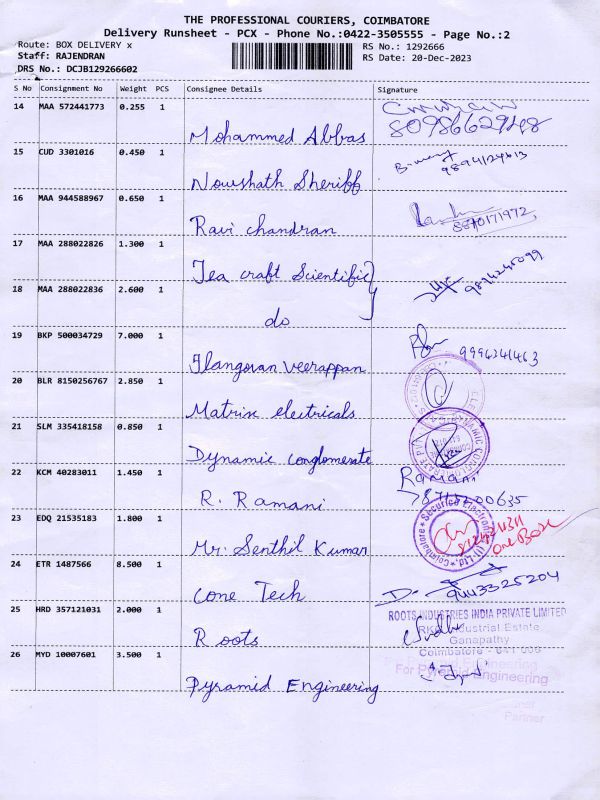 THE PROFESSIONAL COURIERS, COIMBATORE
Delivery Runsheet - PCX - Phone No.:0422-3505555 - Page No.:2
Route: BOX DELIVERY x
RS No.: 1292666
Staff: RAJENDRAN
RS Date: 20-Dec-2023
DRS No.: DCJB129266602
S No Consignment No Weight PCS Consignee Details Signature
14 MAA 572441773 0.255 1
Mohammed Abbas 8098662948
15 CUD 3301016 0.450 1
Noushath Sheriff
16 MAA 944588967 0.650 1
Ravi chandran 8870171972
17 MAA 288022826 1.300 1
Tea craft Scientific
18 MAA 288022836 2.600 1
do
19 BKP 500034729 7.000 1
Ilangovan Veerappan 9994241463
20 BLR 8150256767 2.850 1
Matrix electricals
21 SLM 335418158 0.850 1
Dynamic conglomerate
22 KCM 40283011 1.450 1
Ramani
R. Ramani
23 EDQ 21535183 1.800 1
Securico Electronics
Coimbatore
one Box
Mr. Senthil Kumar
24 ETR 1487566 8.500 1
Cone Tech 9443325204
25 HRD 357121031 2.000 1
ROOTS INDUSTRIES INDIA PRIVATE LIMITED
Industrial Estate
Roots
Ganapathy
Coimbatore - 641 006
26 MYD 10007601 3.500 1
For Pyramid Engineering
Pyramid Engineering
Partner